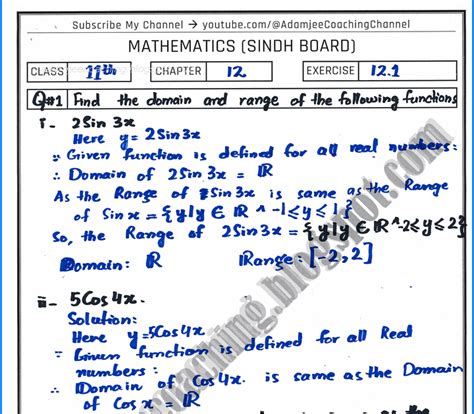 Subscribe My Channel → youtube.com/@AdamjeeCoachingChannel
MATHEMATICS (SINDH BOARD)
CLASS 11th CHAPTER 12 EXERCISE 12.1
Q#1 Find the domain and range of the following functions
i- 2Sin 3x
Here y = 2Sin3x
∵ Given function is defined for all real numbers:
∴ Domain of 2Sin 3x = ℝ
As the Range of Sin3x is same as the Range
of Sin x = {y|y ∈ ℝ ^ -1≤y≤1}
So, the Range of 2Sin3x = {y|y ∈ ℝ ^ -2≤y≤2}
Domain: ℝ Range: [-2,2]
ii- 5Cos4x.
Solution:
Here y=5Cos4x
∵ Given function is defined for all Real
numbers:
∴ Domain of Cos4x. is same as the Domain
of Cos x = ℝ
coaching.blogspot.com